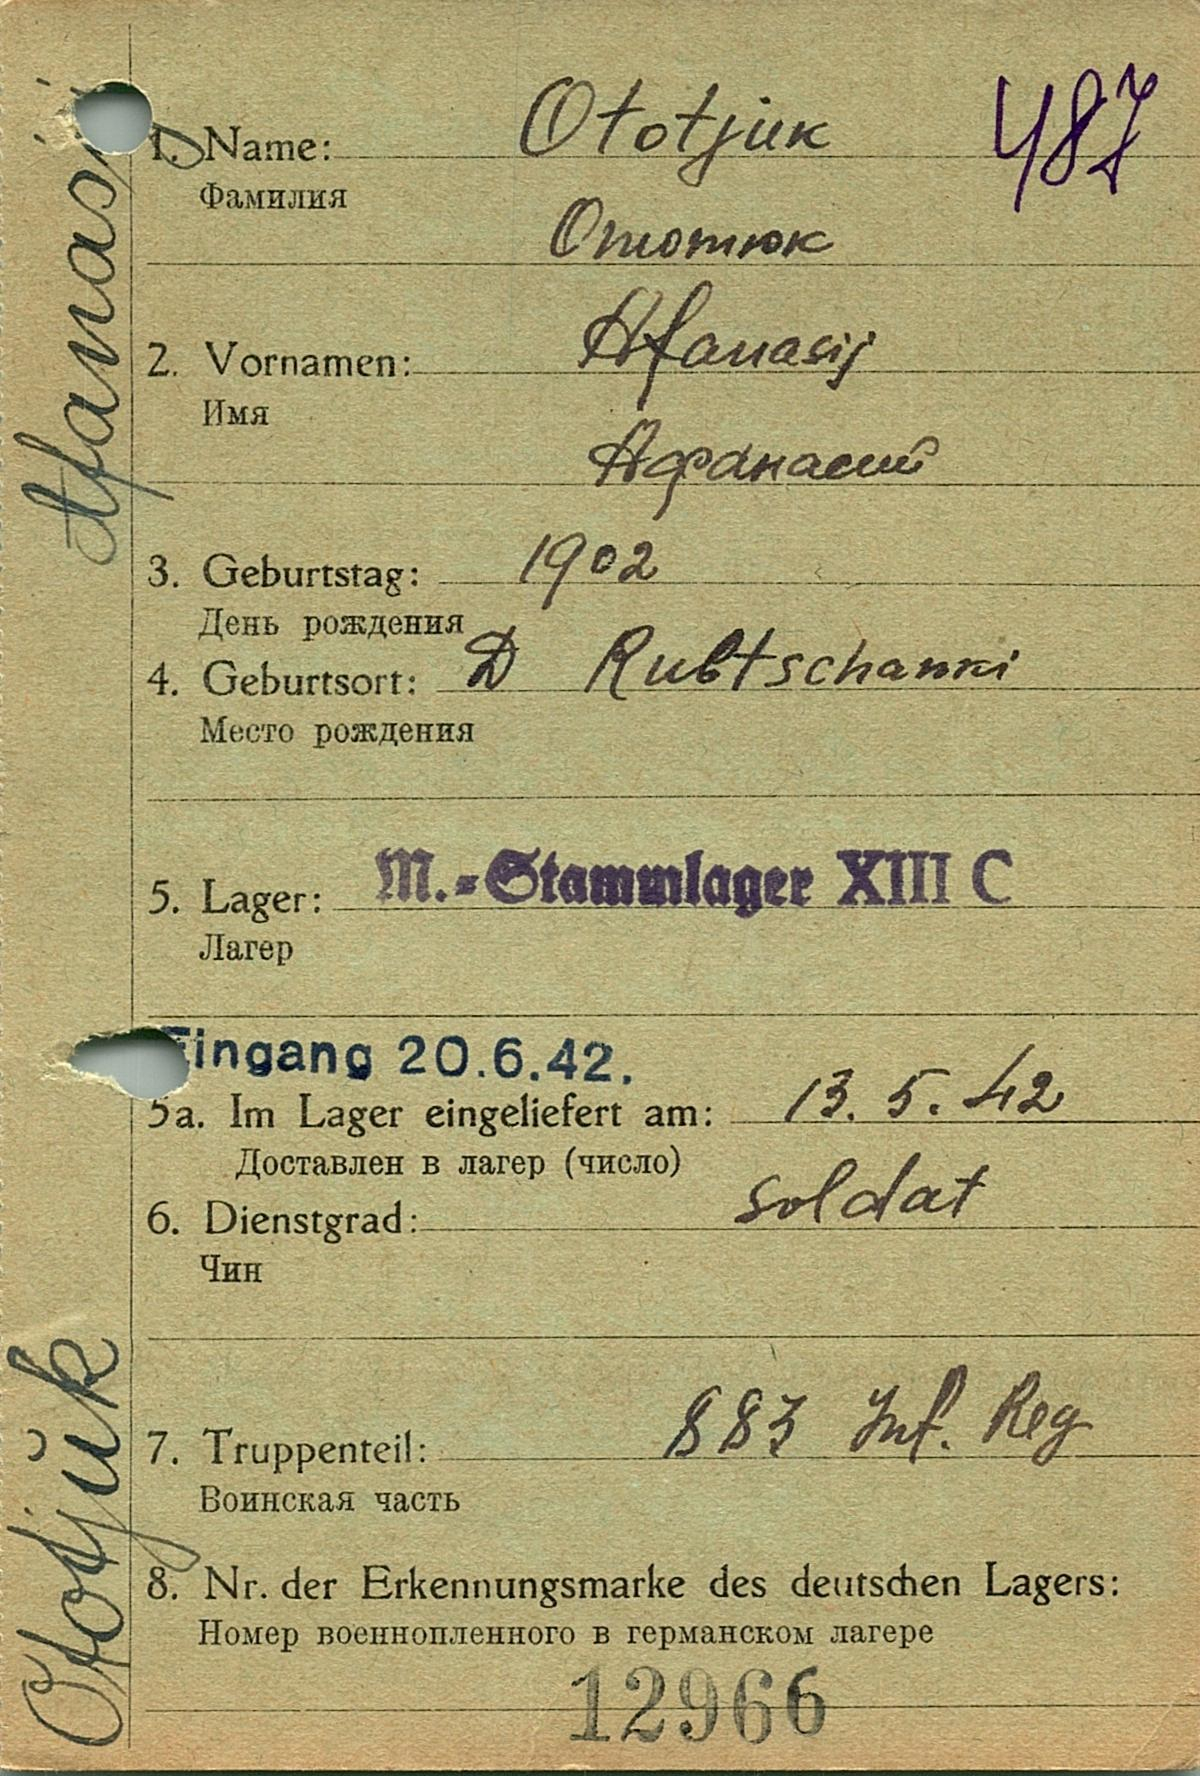 Afanasij
Ototjŭk
487
1. Name: Ototjuk
Фамилия
Ототюк
2. Vornamen: Afanasij
Имя
Афанасий
3. Geburtstag: 1902
День рождения
4. Geburtsort: D Rubtschanki
Место рождения
5. Lager: M.-Stammlager XIII C
Лагер
Eingang 20.6.42.
5a. Im Lager eingeliefert am: 13.5.42
Доставлен в лагер (число)
6. Dienstgrad: soldat
Чин
7. Truppenteil: 883 Inf. Reg
Воинская часть
8. Nr. der Erkennungsmarke des deutschen Lagers:
Номер военнопленного в германском лагере
12966